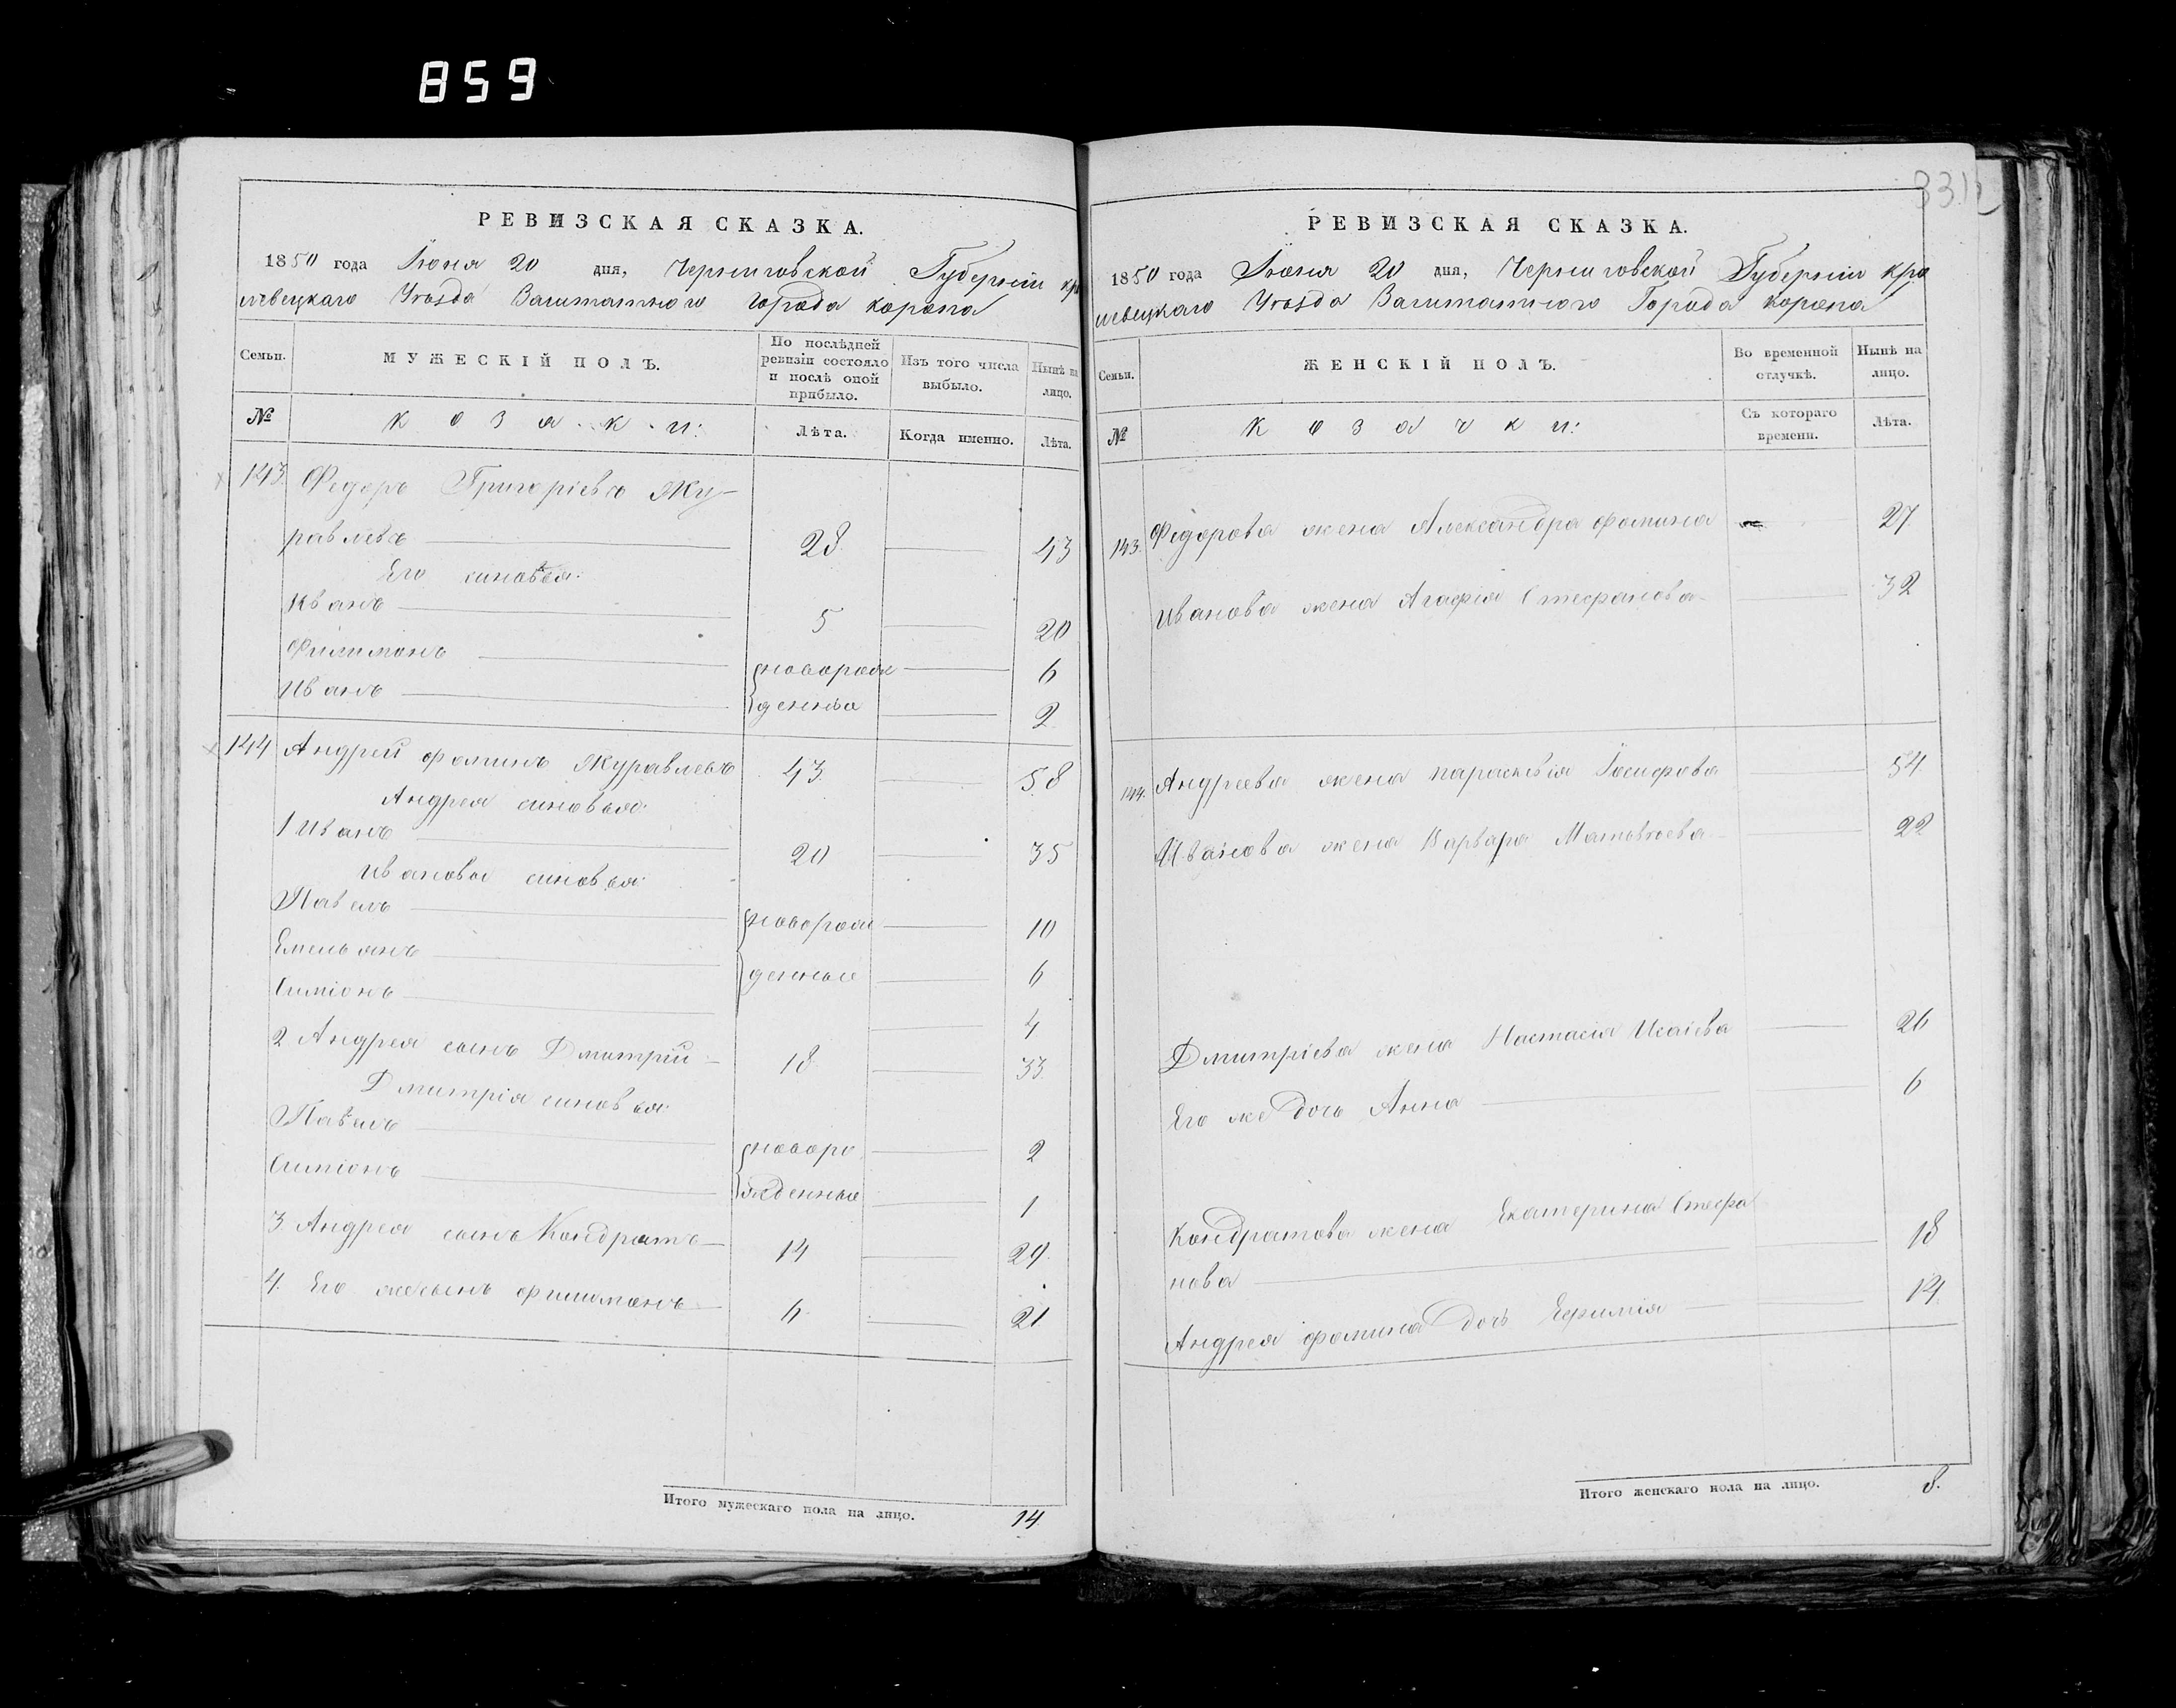 859
РЕВИЗСКАЯ СКАЗКА.
1850 года Іюня 20 дня, Черниговской Губерніи Кро
левецкаго Уѣзда Заштатного города Коропа
Семьи.
МУЖЕСКІЙ ПОЛЪ.
По послѣдней ревизіи состояло и послѣ оной прибыло.
Изъ того числа выбыло.
Нынѣ на лицо.
№
Козаки:
Лѣта.
Когда именно.
Лѣта.
143 Федоръ Григоріевъ Жу-
равлевъ 28. 43
Его синовья:
Иванъ 5 20
Филимонъ новорож 6
Иванъ денніе 2
144 Андрей Фоминъ Журавлевъ 43 58
Андрея синовья:
1 Иванъ 20 35
Иванова синовья:
Павелъ новорож 10
Емельянъ денные 6
Симіонъ 4
2 Андрея сынъ Дмитрій 18 33
Дмитрія синовья:
Павелъ новоро 2
Симіонъ жденные 1
3 Андрея сынъ Кондратъ 14 29
4. Его же сынъ Филимонъ 6 21
Итого мужескаго пола на лицо. 14
331
РЕВИЗСКАЯ СКАЗКА.
1850 года Іюня 20 дня, Черниговской Губерніи Кро
левецкаго Уѣзда Заштатного Города Коропа
Семьи.
ЖЕНСКІЙ ПОЛЪ.
Во временной отлучкѣ.
Нынѣ на лицо.
№
Козачки:
Съ котораго времени.
Лѣта.
143. Федорова жена Александра Фомина 27
Иванова жена Агафія Стефанова 32
144. Андреева жена Параскевія Іосифова 54.
Иванова жена Варвара Матвѣева 22
Дмитріева жена Настасія Исаіева 26
Его же дочь Анна 6
Кондратова жена Екатерина Стефа
нова 18
Андрея Фомина дочь Ефимія 14
Итого женскаго пола на лицо. 8.